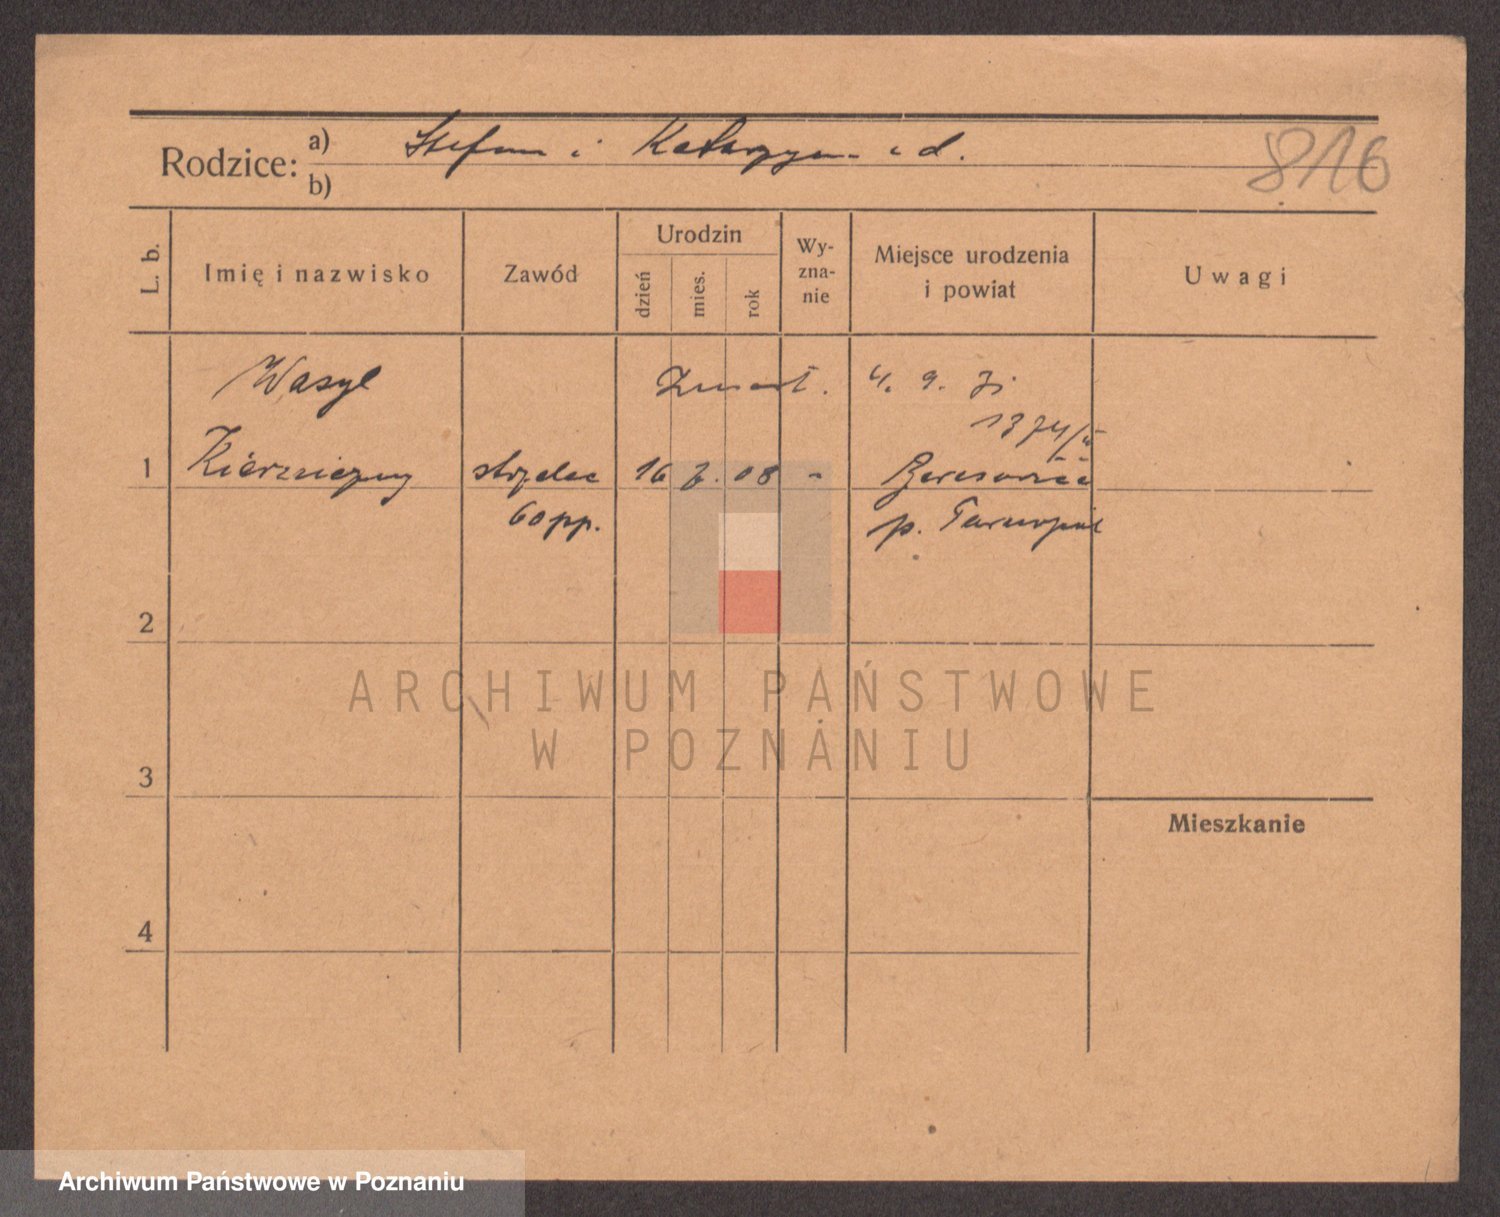 Rodzice: a) Stefan i Katarzyna
b)
816
L. b.
Imię i nazwisko
Zawód
Urodzin
dzień
mies.
rok
Wy-
zna-
nie
Miejsce urodzenia
i powiat
Uwagi
Wasyl Zmarł. 4. 9. 31
1374/
1 strzelec 16 7. 08 -
60 pp. p. Tarnopol
2
ARCHIWUM PAŃSTWOWE
W POZNANIU
3
Mieszkanie
4
Archiwum Państwowe w Poznaniu